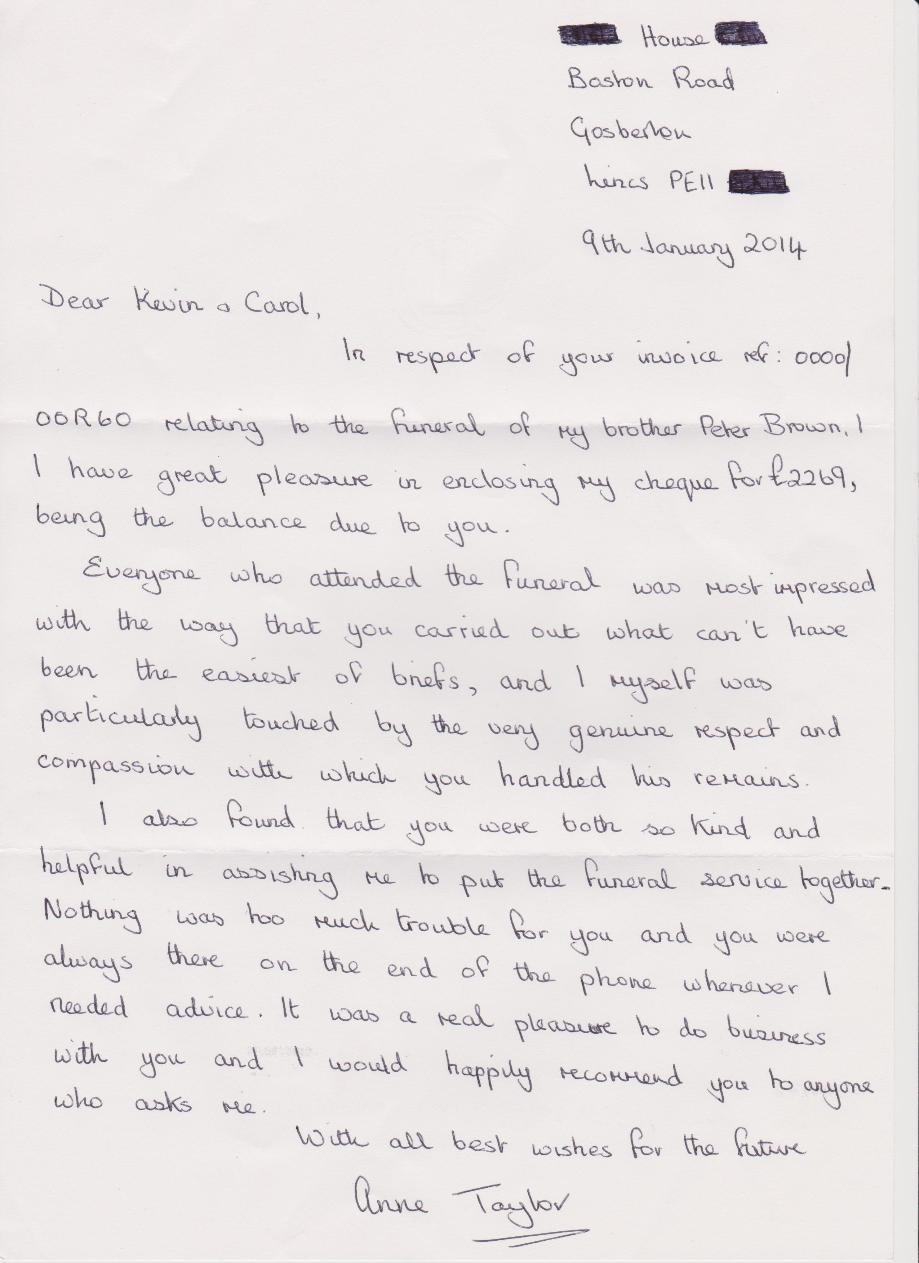 House
Boston Road
Gosberton
Lincs PE11
9th January 2014
Dear Kevin & Carol,
In respect of your invoice ref: 0000/
00R60 relating to the funeral of my brother Peter Brown, I
I have great pleasure in enclosing my cheque for £2269,
being the balance due to you.
Everyone who attended the funeral was most impressed
with the way that you carried out what can't have
been the easiest of briefs, and I myself was
particularly touched by the very genuine respect and
compassion with which you handled his remains.
I also found that you were both so kind and
helpful in assisting me to put the funeral service together.
Nothing was too much trouble for you and you were
always there on the end of the phone whenever I
needed advice. It was a real pleasure to do business
with you and I would happily recommend you to anyone
who asks me.
With all best wishes for the future
Anne Taylor